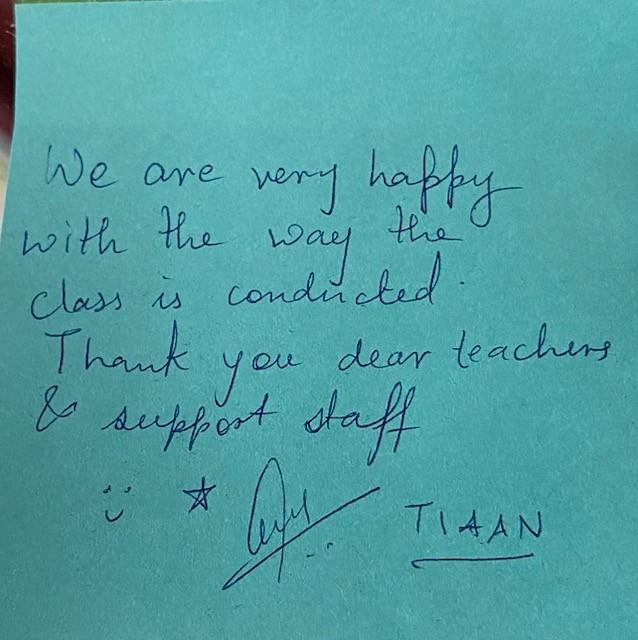 We are very happy
with the way the
class is conducted.
Thank you dear teachers
& support staff
TIAAN